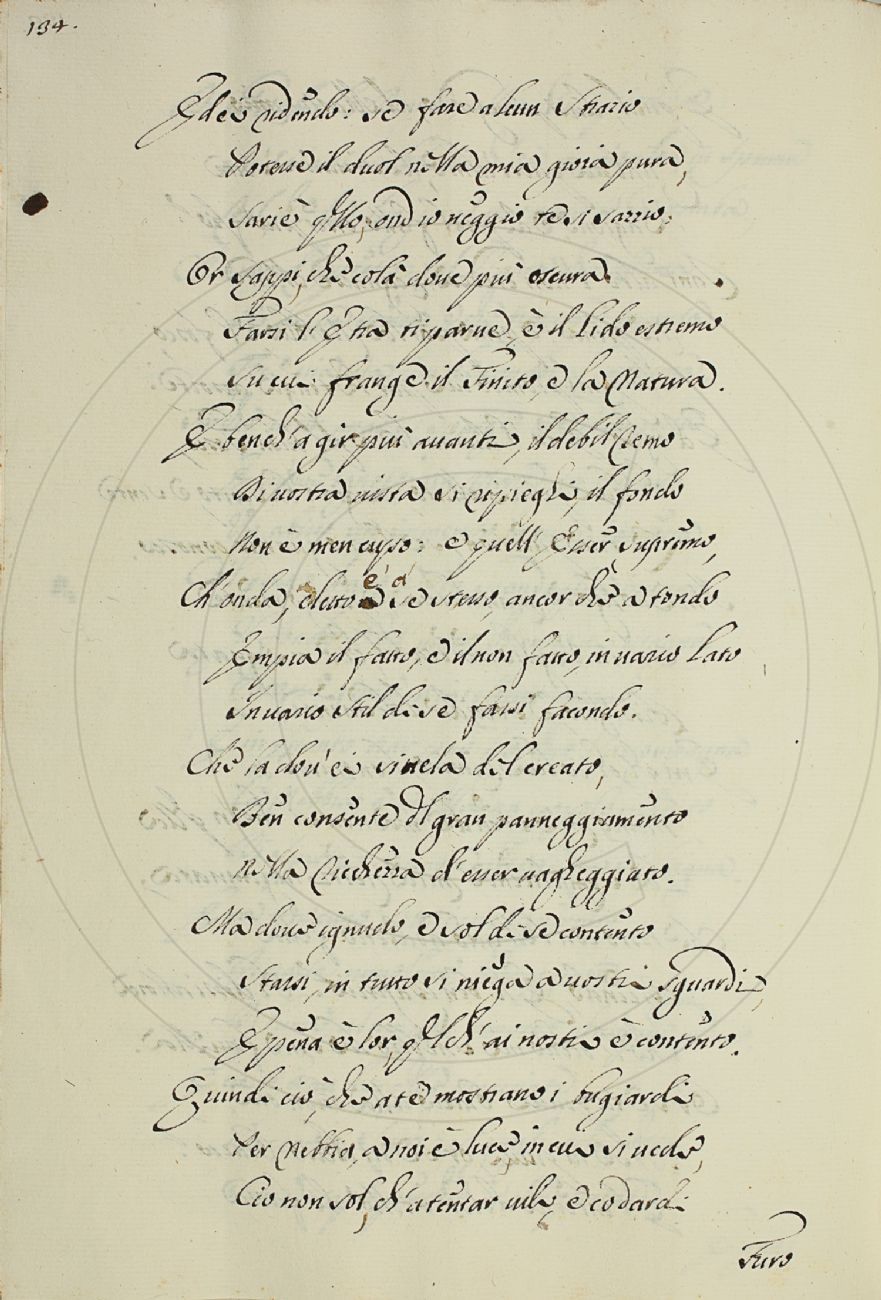 134.
Ed ei ridendo: se fare alcun strazio
Potesse il duol nella mia gioia pura,
Sarie qllo, ond io ueggio te si sazio.
Or sappi, che colà doue più oscura
Farsi l'Etra ti parue, è il lido estremo
Su cui frange il Finito, e la Natura.
E bench'a gir più auanti, il debil remo
Di uostra uista si ripieghi, il fondo
Non è men cupo: e quell'Esser supremo,
Ch'onda, e letto è a se stesso, ancor che a tondo
Empia il fatto, e il non fatto, in uario lato
In uario stil di se farsi facondo.
Che la dou'ei si uela del creato,
Ben consente al gran panneggiamento
Nella ricchezza d'esser uagheggiato.
Ma doue ignudo, e sol di se contento
Stassi, in tutto si niega a uostri sguardi,
E pena è lor, qlch'ai nostri è contento.
Quindi ciò, che a te mostrano i bugiardi
Per Nebbia, a noi è luce, in cui si uede,
Cio non sol, ch'a tentar uili, e codardi
Furo